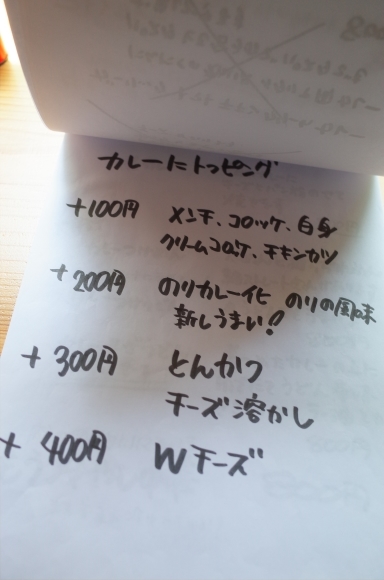 カレーにトッピング
+100円 メンチ、コロッケ、白身
クリームコロッケ、チキンカツ
+200円 のりカレー化 のりの風味
新しうまい!
+300円 とんかつ
チーズ溶かし
+400円 Wチーズ